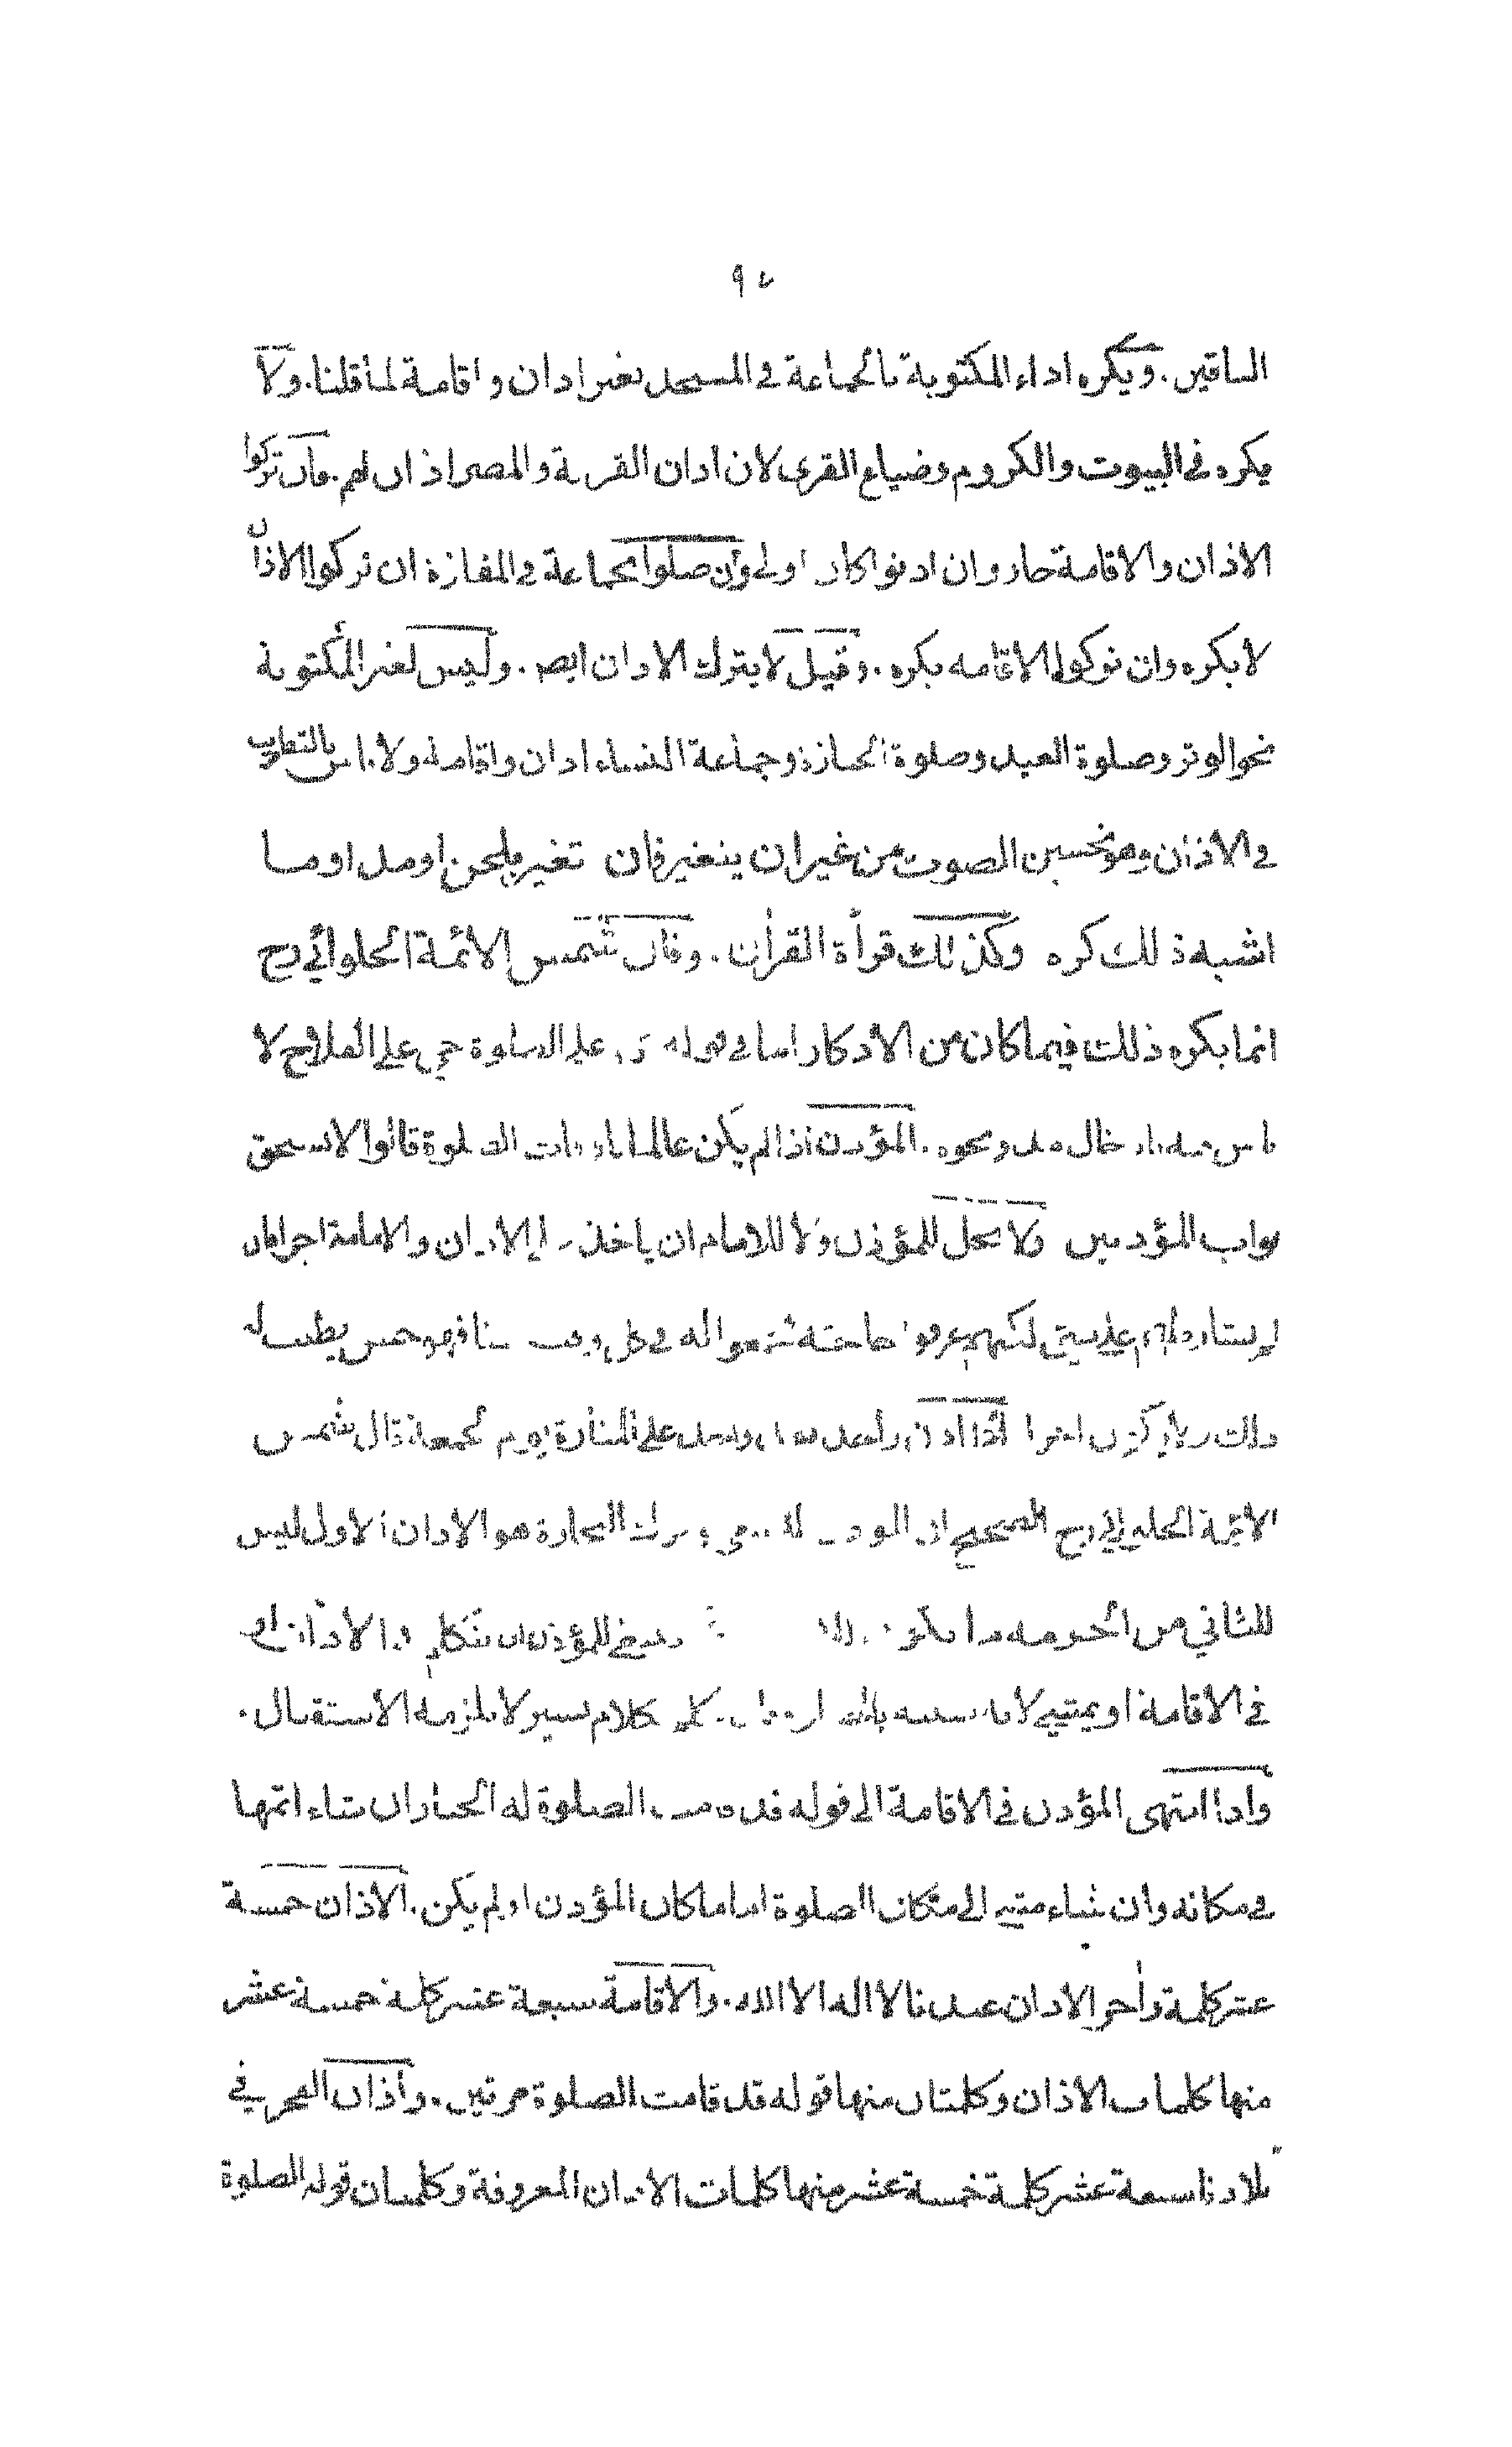 الباقين. ويكره اداء المكتوبة بالجماعة في المسجد بغير اذان واقامة لما قلنا. ولا
يكره في البيوت والكروم وضياع القرى لان اذان القرية والمصر اذان لهم. فان تركوا
الاذان والاقامة جاز وان اذنوا كان اولى وان صلوا بجماعة في المفازة ان تركوا الاذان
لا يكره وان تركوا الاقامة يكره. وقيل لا يترك الاذان ايضا. وليس لغير المكتوبة
نحو الوتر وصلوة العيد وصلوة الجنازة وجماعة النساء اذان واقامة ولا باس بالتطريب
في الاذان وهو تحسين الصوت من غير ان يتغير فان تغير بلحن او مد او ما
اشبه ذلك كره وكذلك قرأة القرأن. وقال شمس الأئمة الحلوائي رح
انما يكره ذلك فيما كان من الأذكار اما في قوله حي على الصلوة حي على الفلاح لا
باس فيه بادخال مد ونحوه. المؤذن اذا لم يكن عالما باوقات الصلوة قالوا لا يستحق
ثواب المؤذنين ولا يحل للمؤذن ولا للامام ان ياخذ على الاذان والامامة اجرا فان
لم يشارطهم على شيء لكنهم عرفوا حاجته فجمعوا له في كل وقت شيئا فهو حسن يطيب له
ذلك ولا يكون اجرا اذا اذن على المنارة يوم الجمعة قال شمس
الائمة الحلوائي رح الصحيح ان ترك التجارة هو الاذان الاول ليس
للثاني من الحرمة ما يكون للمؤذن ان يتكلم في الاذان او
في الاقامة او يمشي لانه كلام يسير لا يلزمه الاستقبال.
واذا انتهى المؤذن في الاقامة الى قوله قد قامت الصلوة له الخيار ان شاء اتمها
في مكانه وان شاء مشى الى مكان الصلوة اماما كان المؤذن او لم يكن. الاذان خمسة
عشر كلمة وأخر الاذان عندنا لا اله الا الله. والاقامة سبعة عشر كلمة خمسة عشر
منها كلمات الاذان وكلمتان منها قوله قد قامت الصلوة مرتين. واذان الفجر في
بلادنا سبعة عشر كلمة خمسة عشر منها كلمات الاذان المعروفة وكلمتان قوله الصلوة